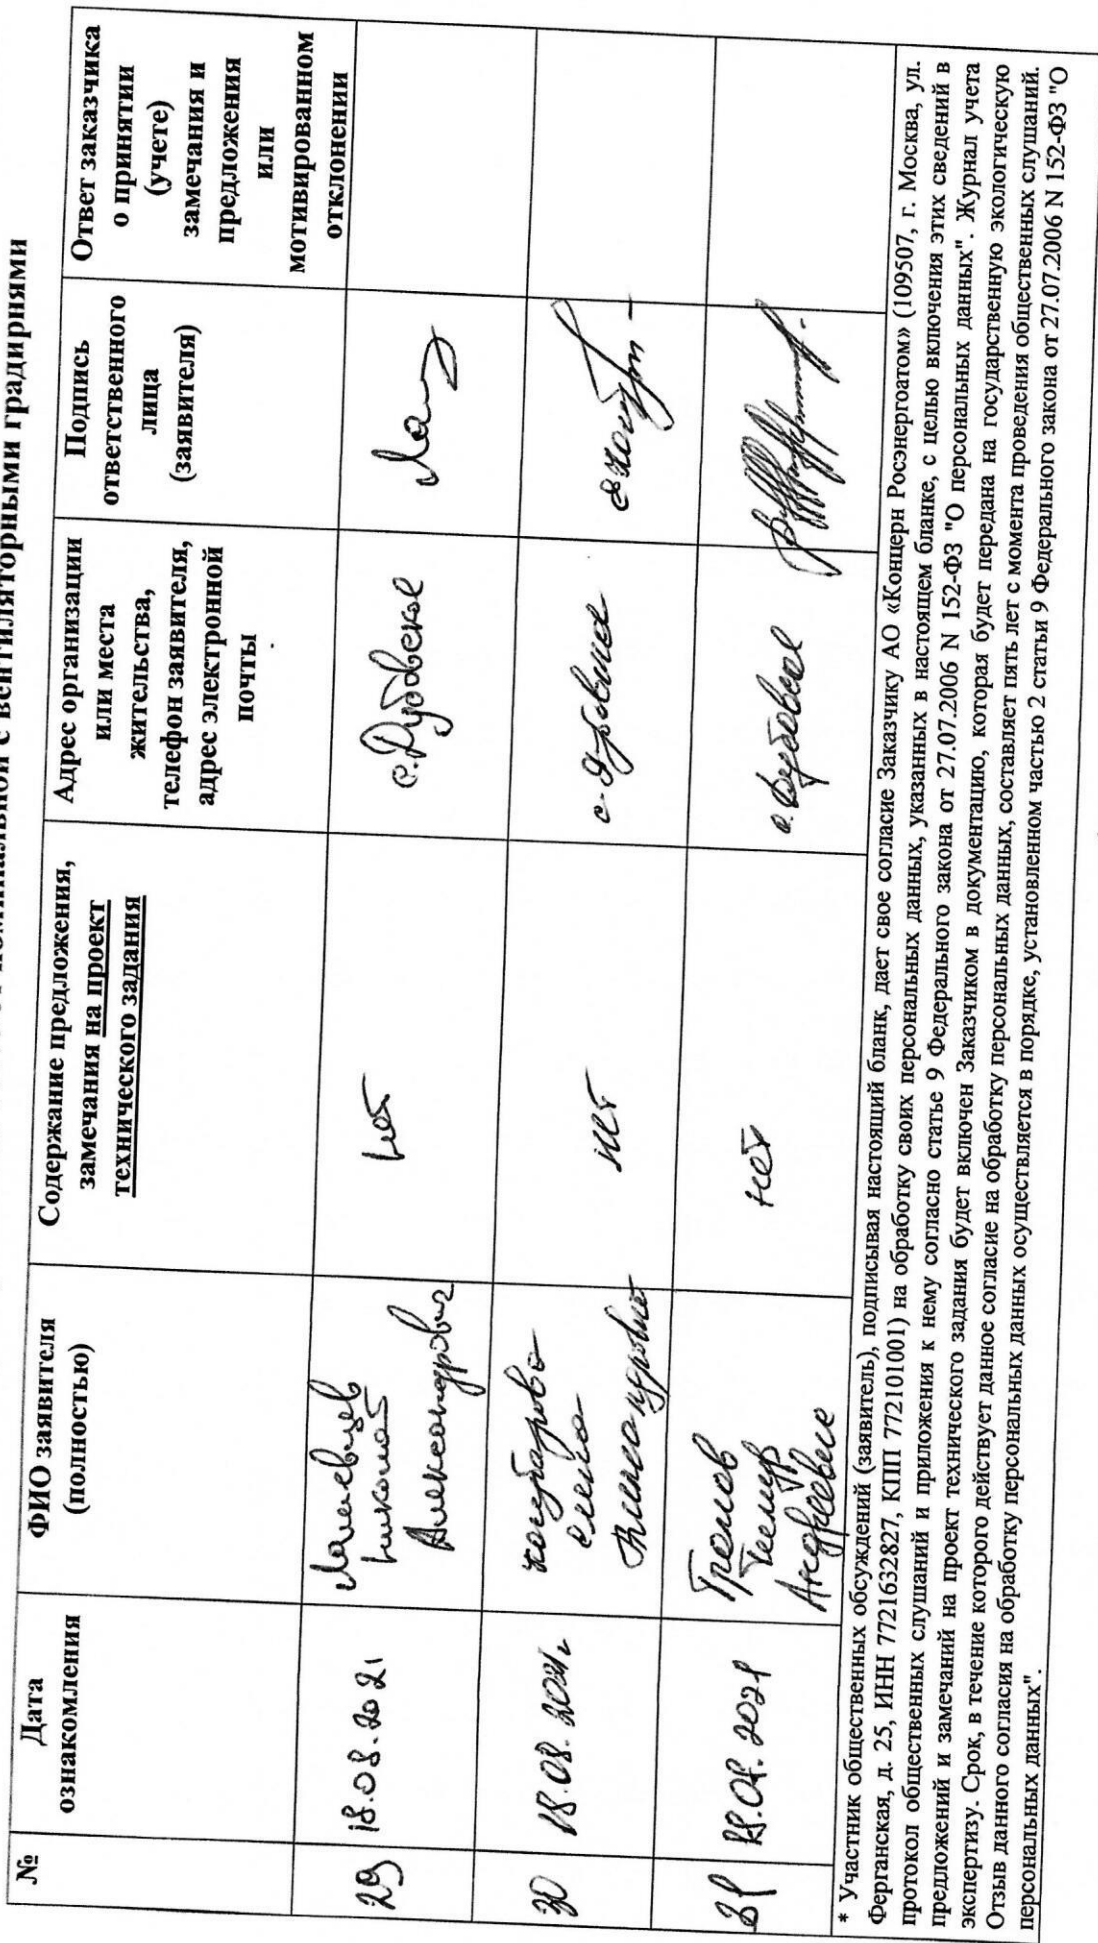 номинальной с вентиляторными градирнями
№
Дата
ознакомления
ФИО заявителя
(полностью)
Содержание предложения,
замечания на проект
технического задания
Адрес организации
или места
жительства,
телефон заявителя,
адрес электронной
почты
Подпись
ответственного
лица
(заявителя)
Ответ заказчика
о принятии
(учете)
замечания и
предложения
или
мотивированном
отклонении
29
18.08.2021
Николай
Александрович
нет
с. Дубовское
30
18.08.2021г
Елена
нет
с. Дубовское
31
18.08.2021
Тимур
Андреевич
нет
с. Дубовское
* Участник общественных обсуждений (заявитель), подписывая настоящий бланк, дает свое согласие Заказчику АО «Концерн Росэнергоатом» (109507, г. Москва, ул.
Ферганская, д. 25, ИНН 7721632827, КПП 772101001) на обработку своих персональных данных, указанных в настоящем бланке, с целью включения этих сведений в
протокол общественных слушаний и приложения к нему согласно статье 9 Федерального закона от 27.07.2006 N 152-ФЗ "О персональных данных". Журнал учета
предложений и замечаний на проект технического задания будет включен Заказчиком в документацию, которая будет передана на государственную экологическую
экспертизу. Срок, в течение которого действует данное согласие на обработку персональных данных, составляет пять лет с момента проведения общественных слушаний.
Отзыв данного согласия на обработку персональных данных осуществляется в порядке, установленном частью 2 статьи 9 Федерального закона от 27.07.2006 N 152-ФЗ "О
персональных данных".